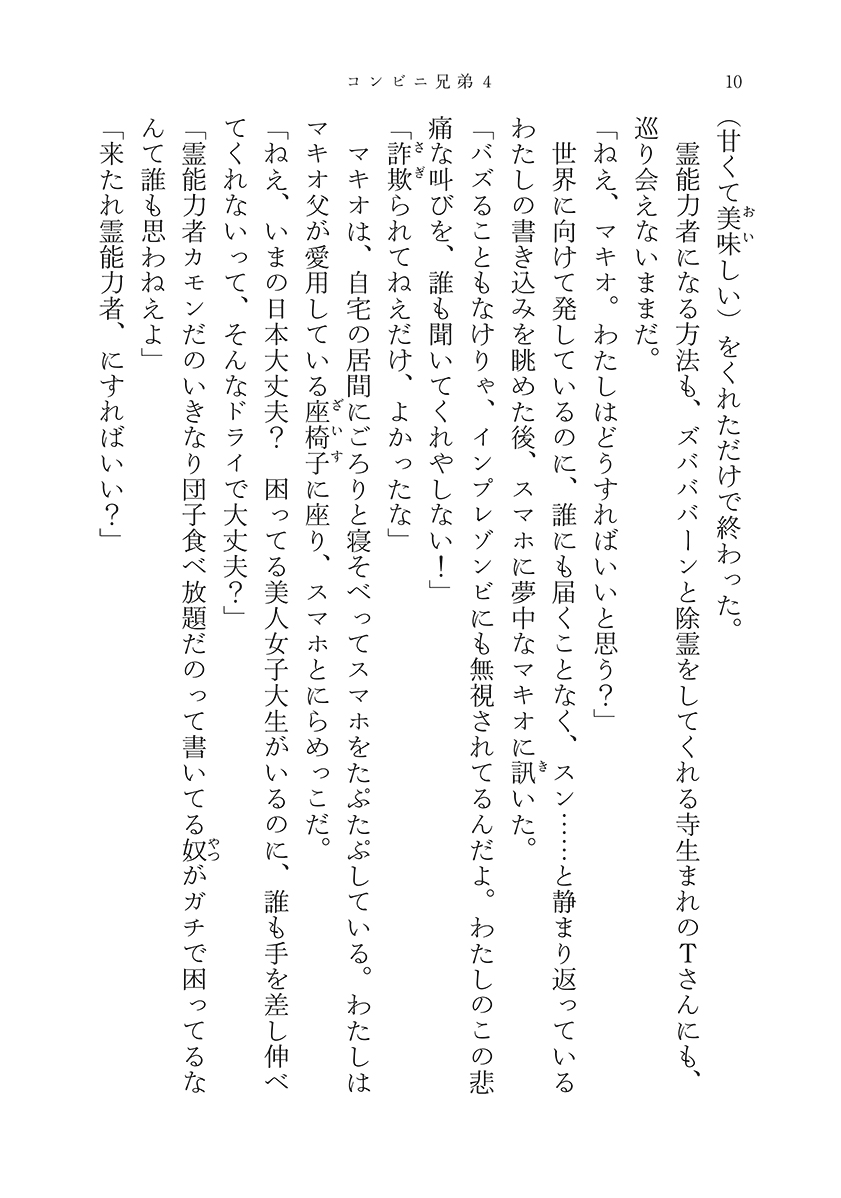 コンビニ兄弟4
10
（甘くて美味しい）をくれただけで終わった。
　霊能力者になる方法も、ズバババーンと除霊をしてくれる寺生まれのTさんにも、
巡り会えないままだ。
「ねえ、マキオ。わたしはどうすればいいと思う？」
　世界に向けて発しているのに、誰にも届くことなく、スン……と静まり返っている
わたしの書き込みを眺めた後、スマホに夢中なマキオに訊いた。
「バズることもなけりゃ、インプレゾンビにも無視されてるんだよ。わたしのこの悲
痛な叫びを、誰も聞いてくれやしない！」
「詐欺られてねえだけ、よかったな」
　マキオは、自宅の居間にごろりと寝そべってスマホをたぷたぷしている。わたしは
マキオ父が愛用している座椅子に座り、スマホとにらめっこだ。
「ねえ、いまの日本大丈夫？　困ってる美人女子大生がいるのに、誰も手を差し伸べ
てくれないって、そんなドライで大丈夫？」
「霊能力者カモンだのいきなり団子食べ放題だのって書いてる奴がガチで困ってるな
んて誰も思わねえよ」
「来たれ霊能力者、にすればいい？」